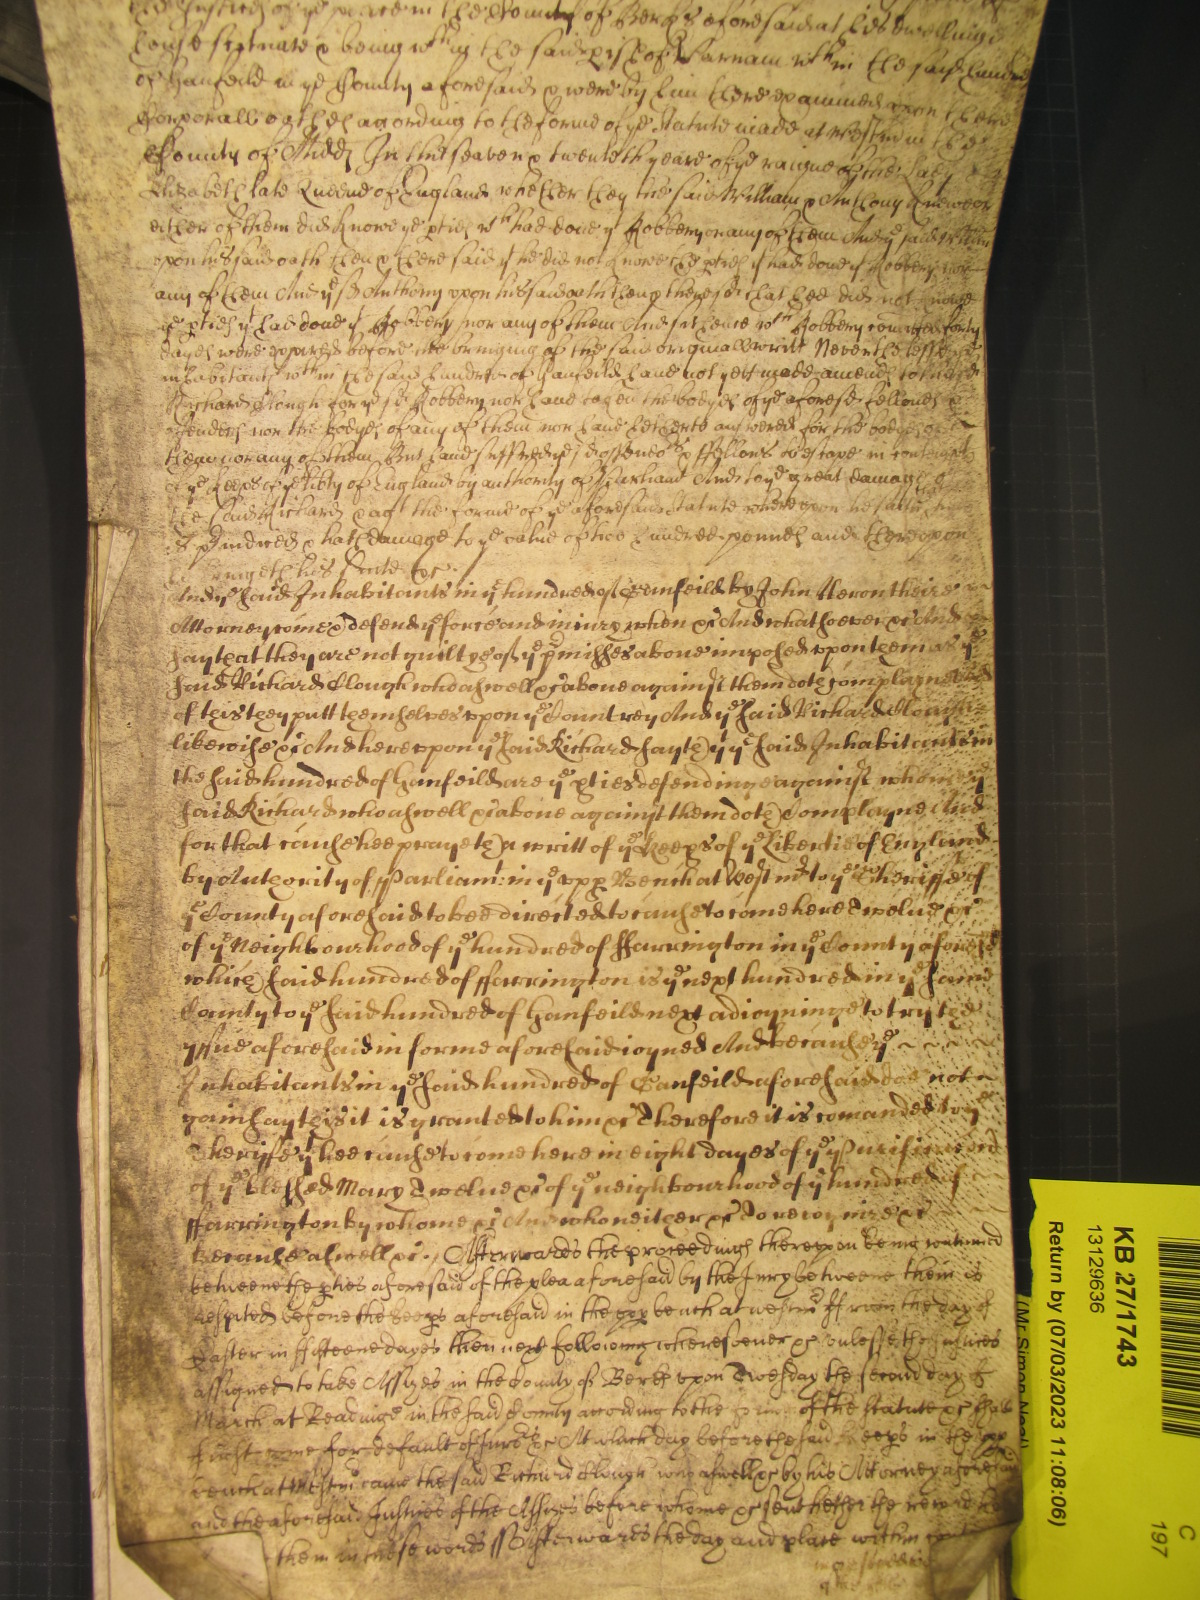 the Justices of ye peace in the County of Berks aforesaid at his dwellinge
house scituate & being wthin the said pish of Warnam wthin the said hundred
of Ganfeild in ye County aforesaid & were by him there examined upon there
Corporall oathes according to the forme of ye Statute made at Westm in the
County of Midd In the seaven & twenteth yeare of ye raigne of the lady
Elizabeth late Queene of England whether they the said William & Anthony knewe or
either of them did know ye pties wch had done ye Robbery or any of them And ye said Willm
upon his said oath then & there said yt he did not knowe the pties yt had done ye Robbery nor
any of them And ye sd Anthony upon his said oath then & there sd that hee did not knowe
ye pties yt had done ye Robbery nor any of them And sithence wch Robbery comitted forty
dayes were expired before the bringing of the said originall writt Neverthelesse ye
inhabitants wthin the said hundred of Ganfeild have not yett made amends to the said
Richard Clough for ye sd Robbery nor have taken the bodyes of ye aforesd fellons &
offenders nor the bodyes of any of them nor have hitherto answered for the bodyes of
them nor any of them But have suffred ye sd offendrs & ffellons to escape in contempt
of ye Keeps of ye libty of England by authority of Parliamt And to ye great damage of
the said Richard & agt the forme of ye aforesaid Statute whereupon he saith
is & hath damage to ye value of two hundred pounds and thereupon
he bringeth his suite &c.
And ye said Inhabitants in ye hundred of Ganfeild by John Heron theire
Attorney come & defend ye force and iniury when &c And whatsoever &c And
say that they are not guilty of ye pmisses above imposed upon them as ye
said Richard Clough who aswell &c above against them doth complayne And
of this they putt themselves upon ye Countrey And ye said Richard Clough
likewise &c And hereupon ye said Richard sayth yt ye said Inhabitants in
the said hundred of Ganfeild are ye pties defendinge against whome ye
said Richard who aswell &c above against them doth Complayne And
for that cause hee prayeth a writt of ye Keeps of ye Libertie of England
by Authority of Parliamt: in ye upp Bench at Westmr to ye Sheriffe of
ye County aforesaid to bee directed to cause to come here Twelve &c
of ye Neighbourhood of ye hundred of ffarrington in ye County aforesd
which said hundred of ffarrington is ye next hundred in ye same
County to ye said hundred of Ganfeild next adioyninge to try the
yssue aforesaid in forme aforesaid ioyned And because ye
Inhabitants in ye said hundred of Ganfeild aforesaid doe not
gainsay this it is granted to him &c Therefore it is comanded to ye
Sheriffe yt hee cause to come here in eight dayes of ye Purificacon
of ye blessed Mary Twelve &c of ye neighbourhood of ye hundred of
ffarrington by whome &c And who neither &c To recognize &c
Because aswell &c. Afterwards the proceedings thereupon being continued
betweene the pties aforesaid of the plea aforesaid by the Jury betweene them is
respited before the Keeps aforesaid in the upp bench at westmr ffrom the day of
Easter in ffifteene dayes then next following wheresoever &c unlesse the Justices
assigned to take Assizes in the County of Berks upon Twesday the second day of
March at Readinge in the said County according to the forme of the Statute &c shall
first come for default of Jurs &c At which day before the said Keeps in the upp
bench at Westmr came the said Richard Clough who aswell &c by his Attorney aforesaid
and the aforesaid Justices of the Assizes before whome &c sent hether the record
them in these words ss Afterwards the day and place within
KB 27/1743
13129636
Return by (07/03/2023 11:08:06)
C
197